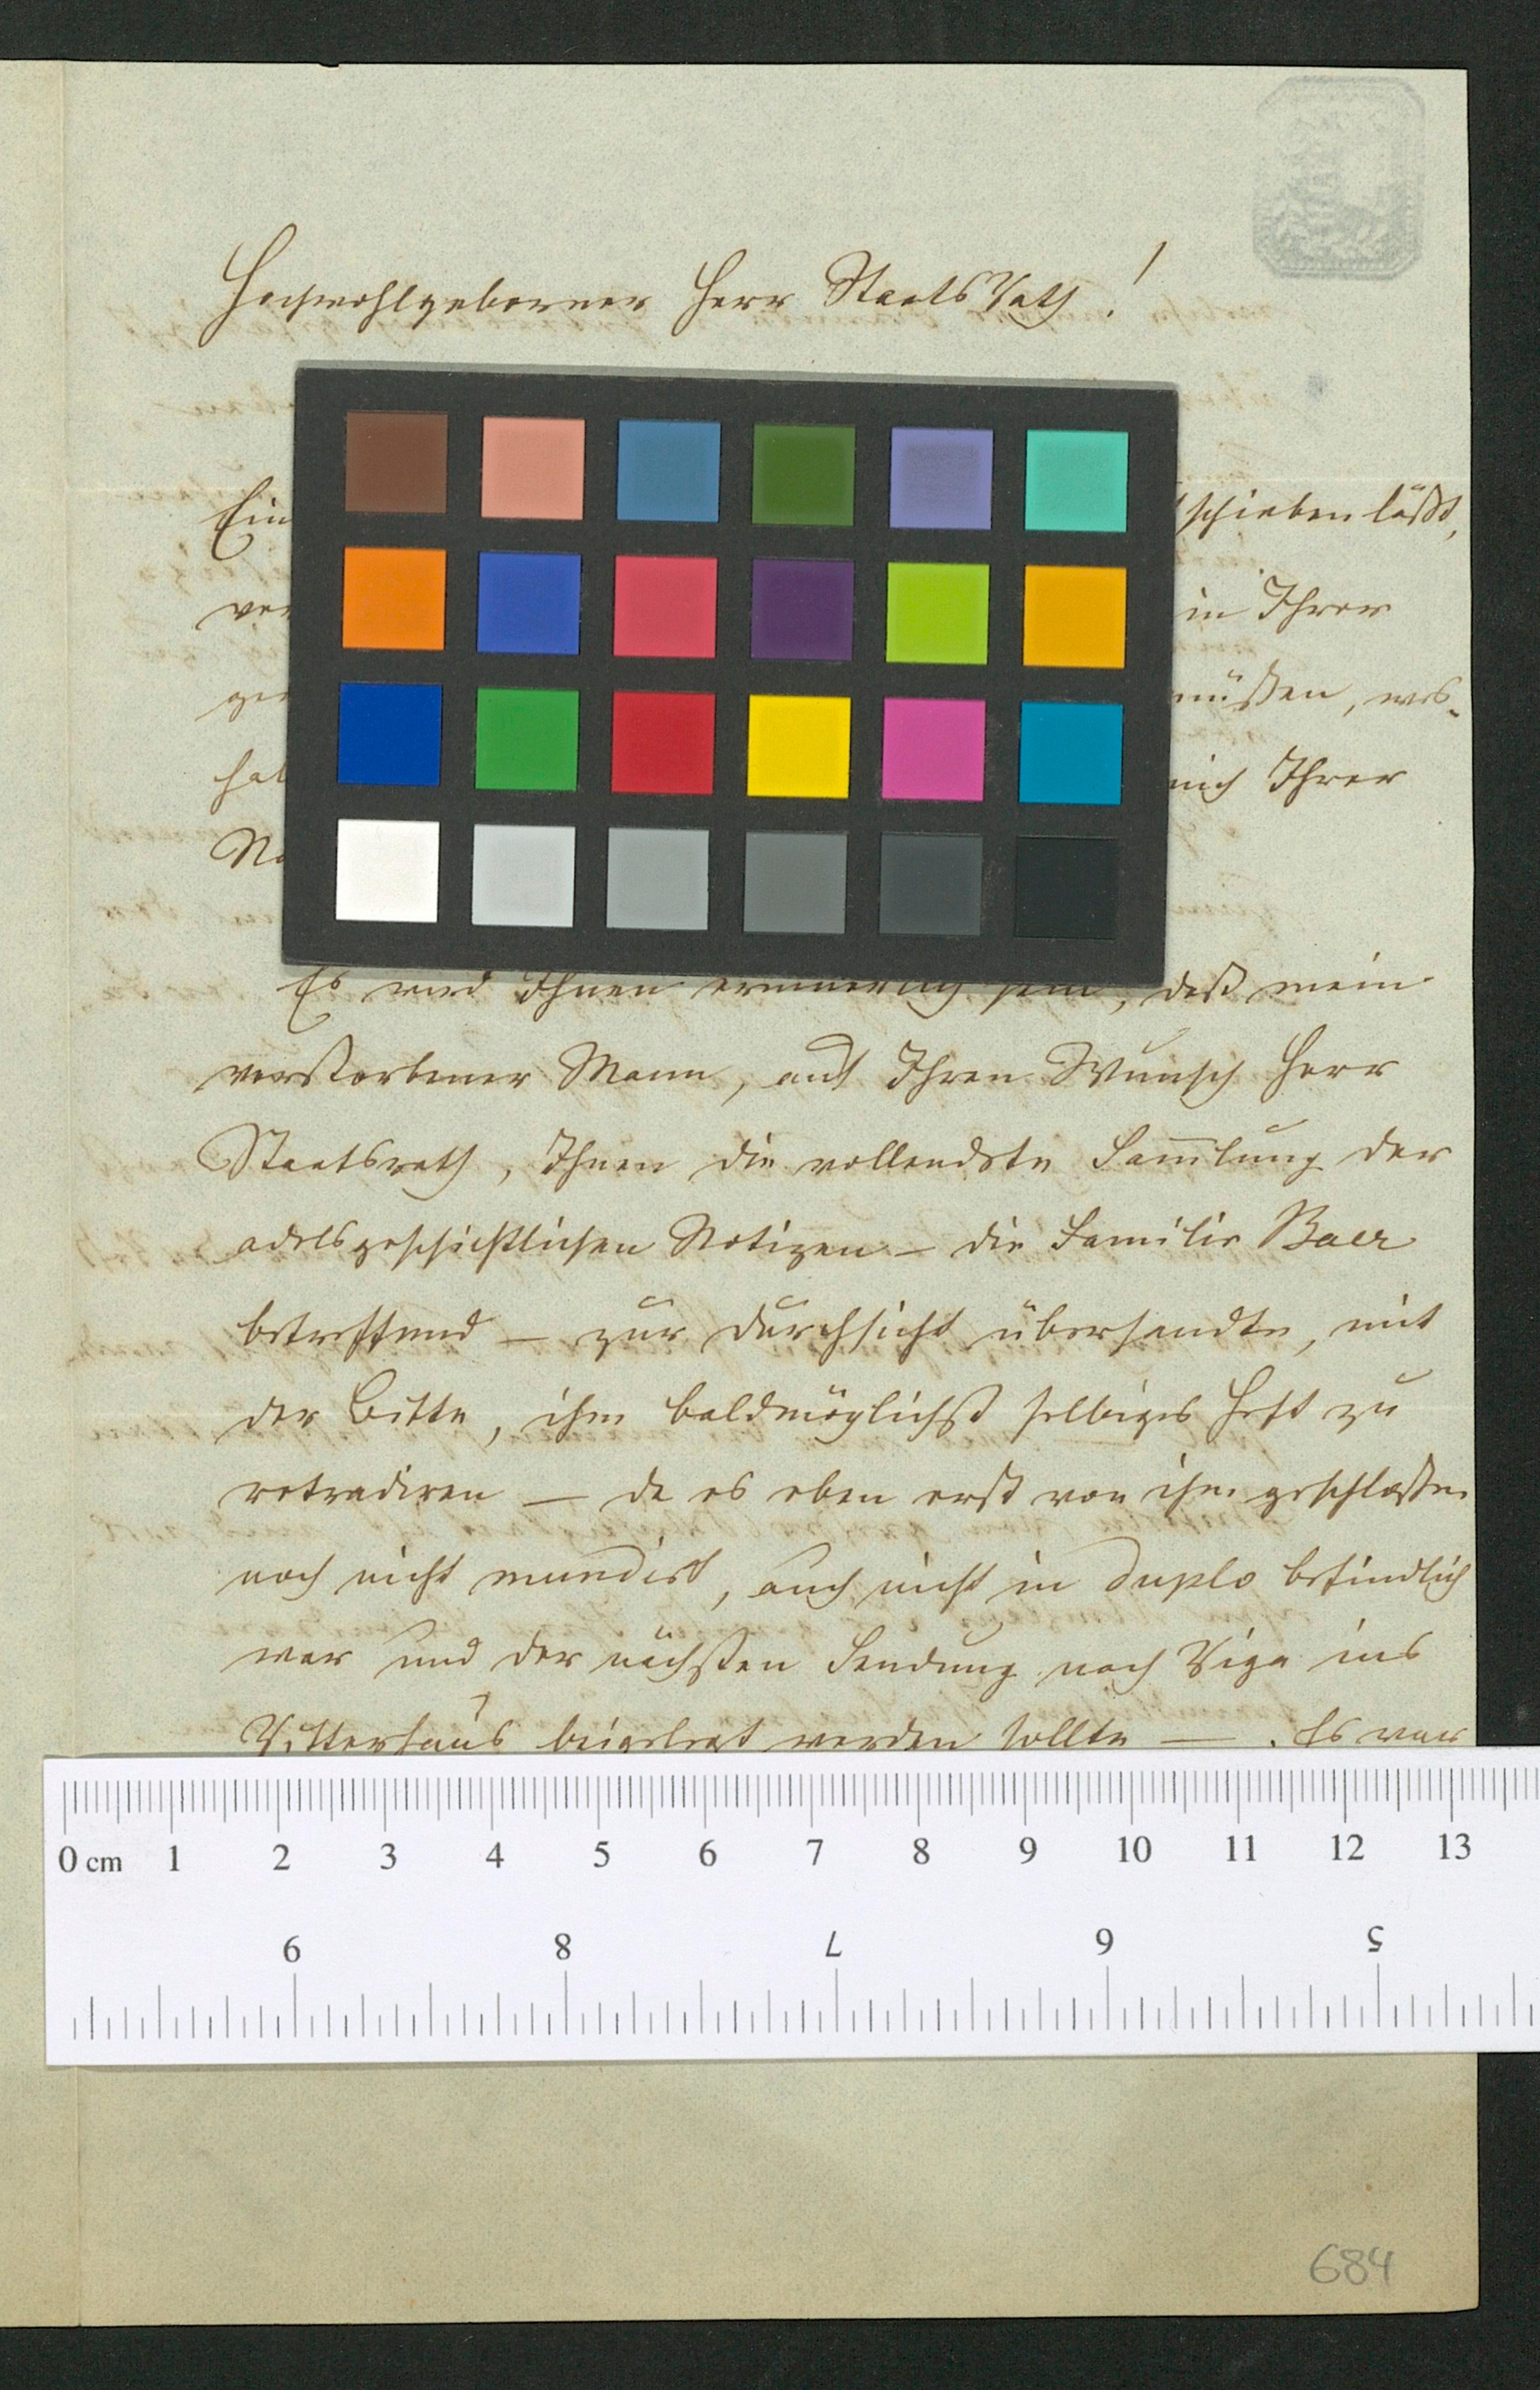 Hochwohlgeborner Herr StaatsRath!
Ein schieben läßt,
in Ihrer
müßen, wes-
hal mich Ihrer
Es wird Ihnen erinnerlig sein, daß mein
verstorbener Mann, auf Ihren Wunsch Herr
Staatsrath, Ihnen die vollendete Samlung der
adelsgeschichtlichen Notizen – die Familie Baer
betreffend – zur Durchsicht übersandte, mit
der Bitte, ihm baldmöglichst selbiges Heft zu
retradiren – da es eben erst von ihm geschloßen
noch nicht mundirt, auch nicht in duplo befindlich
war und der nächsten Sendung nach Riga ins
Ritterhaus beigelegt werden sollte – . Es war
0 cm 1 2 3 4 5 6 7 8 9 10 11 12 13
9 8 7 6 5
684